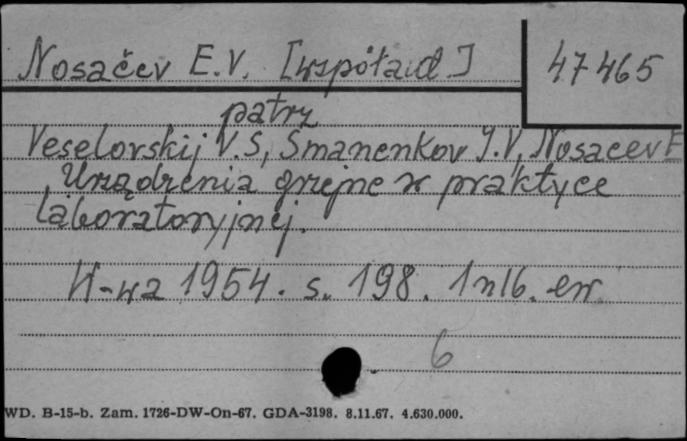 Nosačev E.V. [współaud.]
47465
patrz
Veselovskij V.S, Smanenkov I.V, Nosacev E
Urządzenia grzejne w praktyce
laboratoryjnej.
W-wa 1954. s. 198. 1 nlb. err.
6
WD. B-15-b. Zam. 1726-DW-On-67. GDA-3198. 8.11.67. 4.630.000.